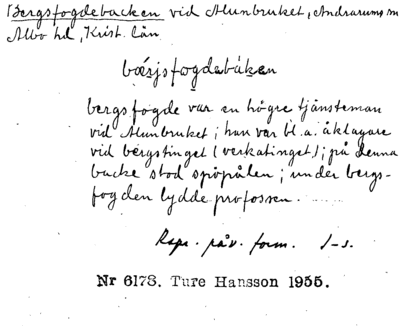 Bergsfogdebacken vid Alunbruket, Andrarums sn
Albo hd, Krist. län
bærjsfogdebáken
bergsfogde var en högre tjänsteman
vid Alunbruket; han var bl.a. åklagare
vid bergstinget (verkatinget); på denna
backe stod spöpålen; under bergs-
fogden lydde profossen.
form. 1-s.
Nr 6178. Ture Hansson 1955.